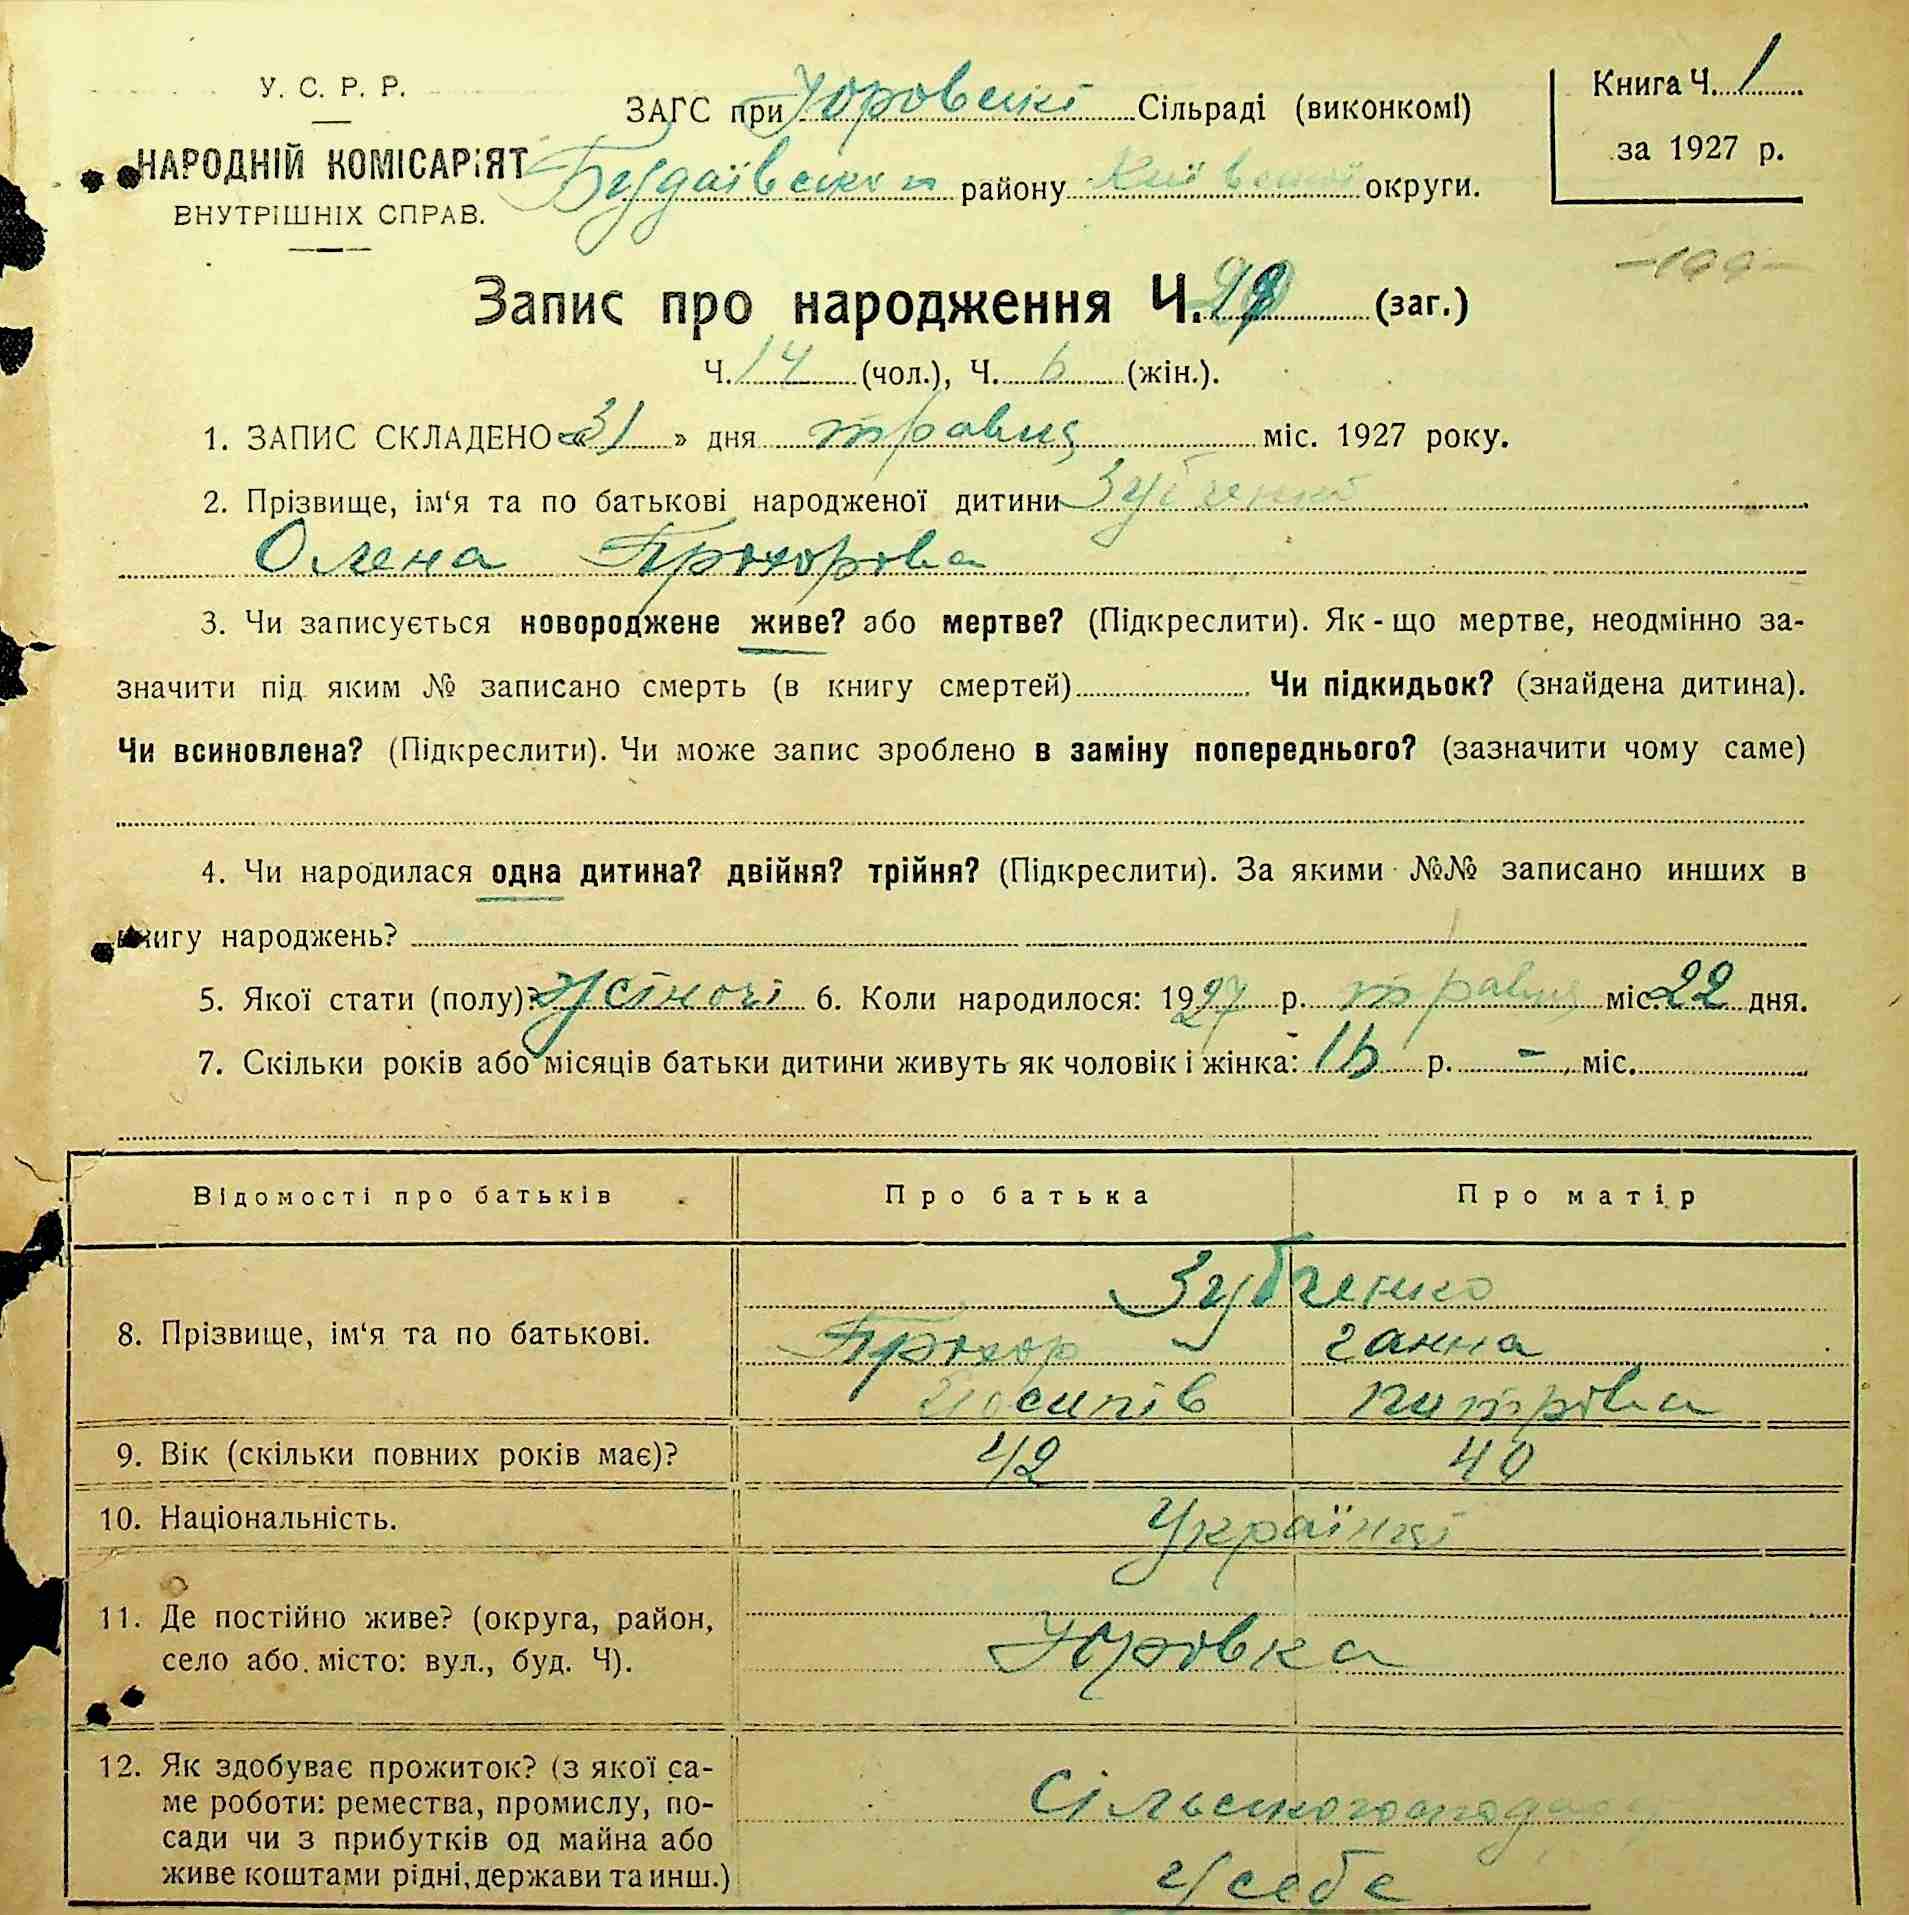 У. С. Р. Р.
НАРОДНІЙ КОМІСАРІЯТ
ВНУТРІШНІХ СПРАВ.
ЗАГС при Юровській Сільраді (виконкомі)
Будаївського району Київської округи.
Книга Ч. 1
за 1927 р.
Запис про народження Ч. (заг.)
Ч. 14 (чол.), Ч. 6 (жін.).
1. ЗАПИС СКЛАДЕНО «31» дня травня міс. 1927 року.
2. Прізвище, ім'я та по батькові народженої дитини Зубченко
Олена Прохорова
3. Чи записується новороджене живе? або мертве? (Підкреслити). Як-що мертве, неодмінно за-
значити під яким № записано смерть (в книгу смертей) Чи підкидьок? (знайдена дитина).
Чи всиновлена? (Підкреслити). Чи може запис зроблено в заміну попереднього? (зазначити чому саме)
4. Чи народилася одна дитина? двійня? трійня? (Підкреслити). За якими №№ записано инших в
книгу народжень?
5. Якої стати (полу)? жіночі 6. Коли народилося: 1927 р. травня міс. 22 дня.
7. Скільки років або місяців батьки дитини живуть як чоловік і жінка: 16 р. - міс.
Відомості про батьків Про батька Про матір
Зубченко
8. Прізвище, ім'я та по батькові. Прохор ганна
Йосипів петрівна
9. Вік (скільки повних років має)? 42 40
10. Національність. Українці
11. Де постійно живе? (округа, район,
село або місто: вул., буд. Ч). Юровка
12. Як здобуває прожиток? (з якої са-
ме роботи: ремества, промислу, по-
сади чи з прибутків од майна або
живе коштами рідні, держави та инш.)
у себе